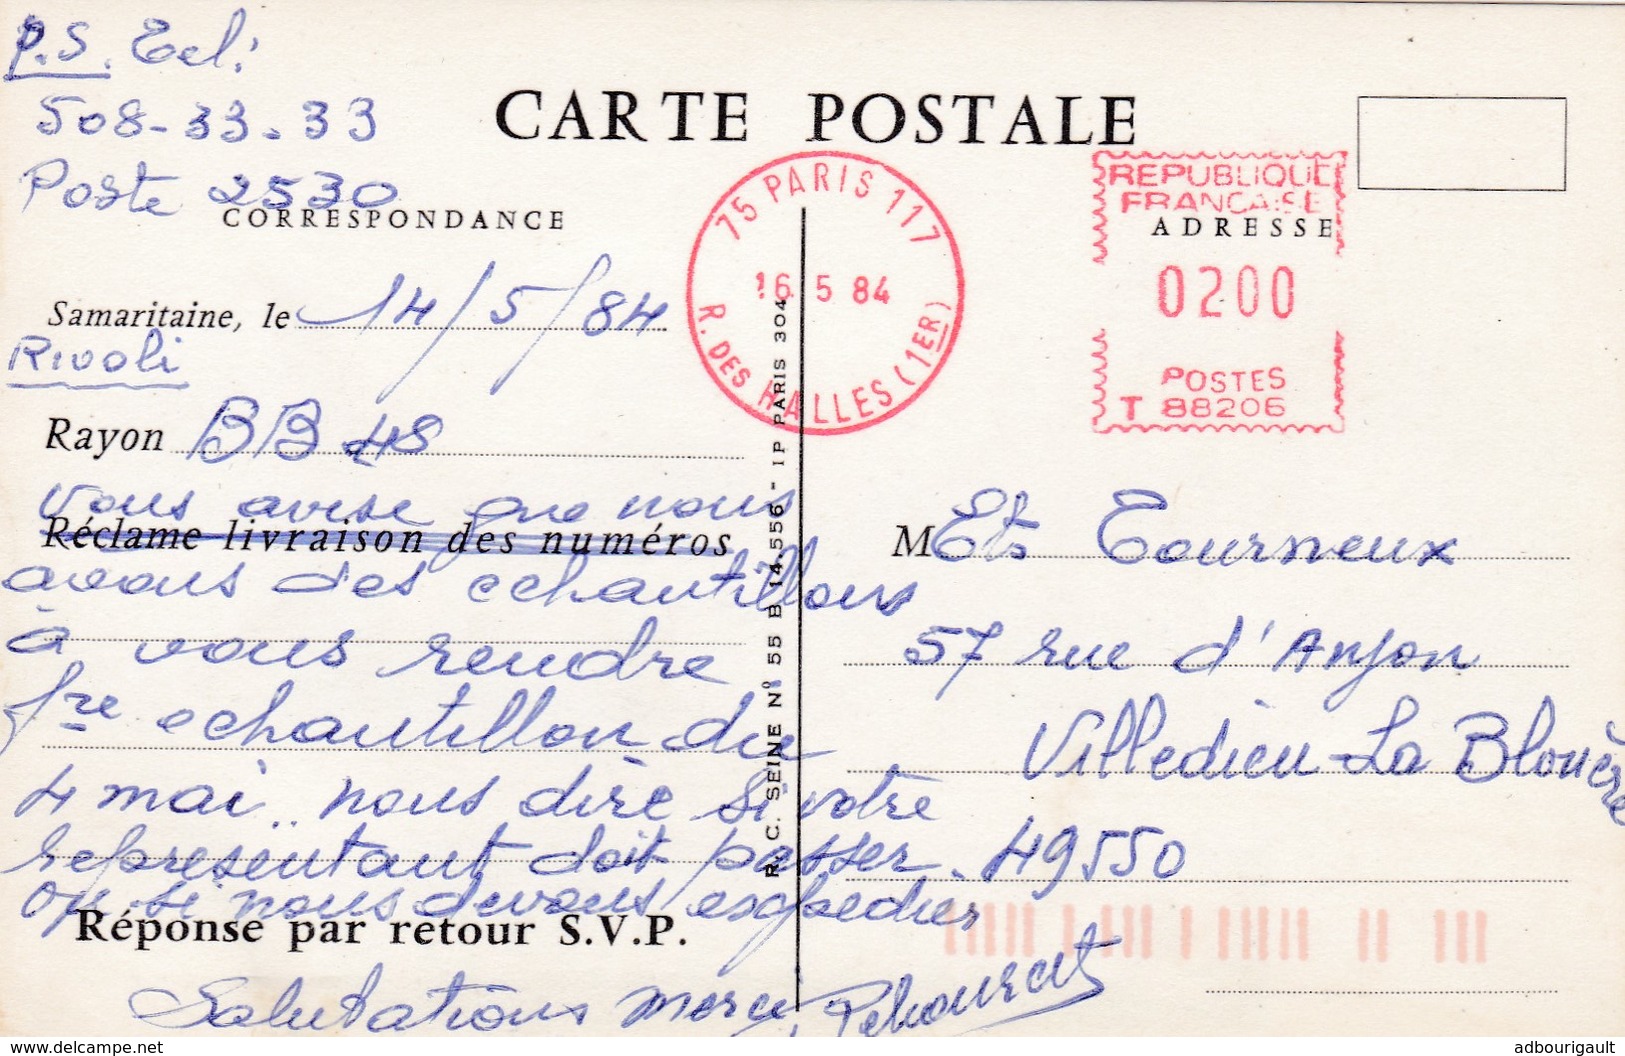 P.S. Tel:
508-33-33
Poste 2530
CARTE POSTALE
CORRESPONDANCE
75 PARIS 117
16 5 84
R. DES HALLES (1ER)
REPUBLIQUE
FRANCAISE
ADRESSE
0200
POSTES
T 88206
Samaritaine, le 14/5/84
Rivoli
Rayon BB 48
vous avise que nous
Réclame livraison des numéros
avons des echantillons
à vous rendre
1re echantillon du
4 mai.. nous dire si votre
representant doit passer.
ou si nous devons expedier
Réponse par retour S.V.P.
Salutations merci
R. C. SEINE N° 55 B 14.556 - IP PARIS 304
M Ets Tourneux
57 rue d'Anjou
Villedieu-La Blouère
49550
© www.delcampe.net
adbourigault